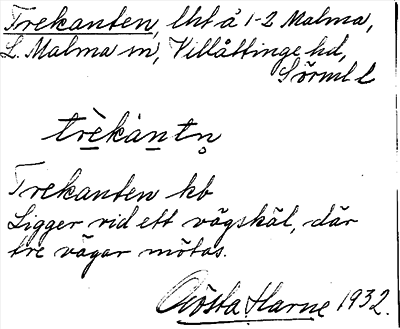 Trekanten, lht å 1-2 Malma,
L. Malma sn, Villåttinge hd,
Sörml l
trèkántn̥
Trekanten kb
Ligger vid ett vägskäl, där
tre vägar mötas.
Gösta Harne 1932.